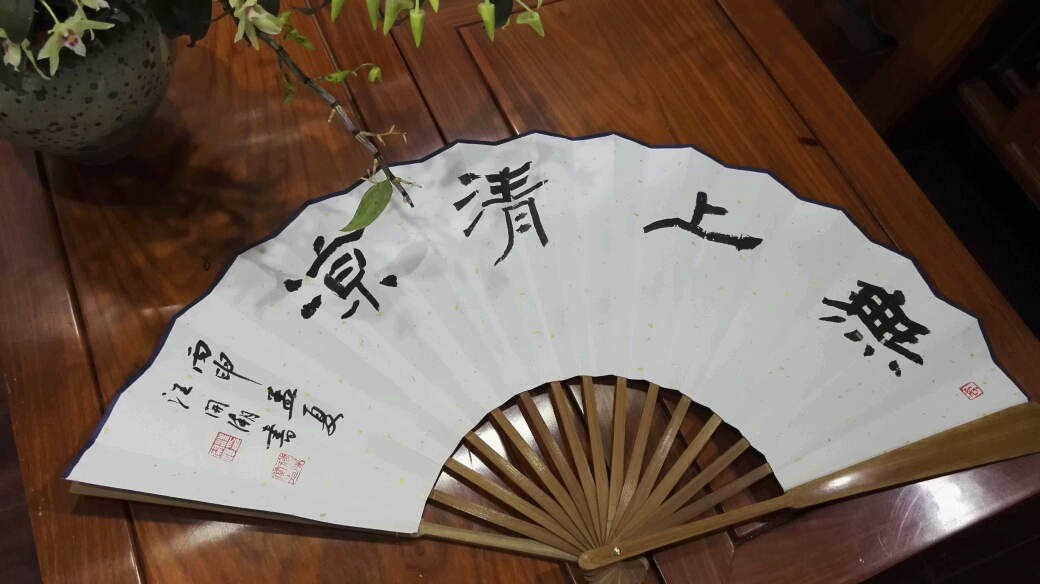 無上清涼
丙申孟夏
江開湖書